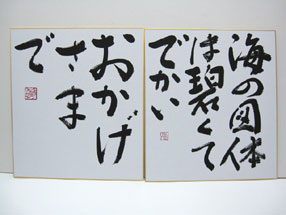 海の図体
は碧くて
でかい
おかげ
さま
で